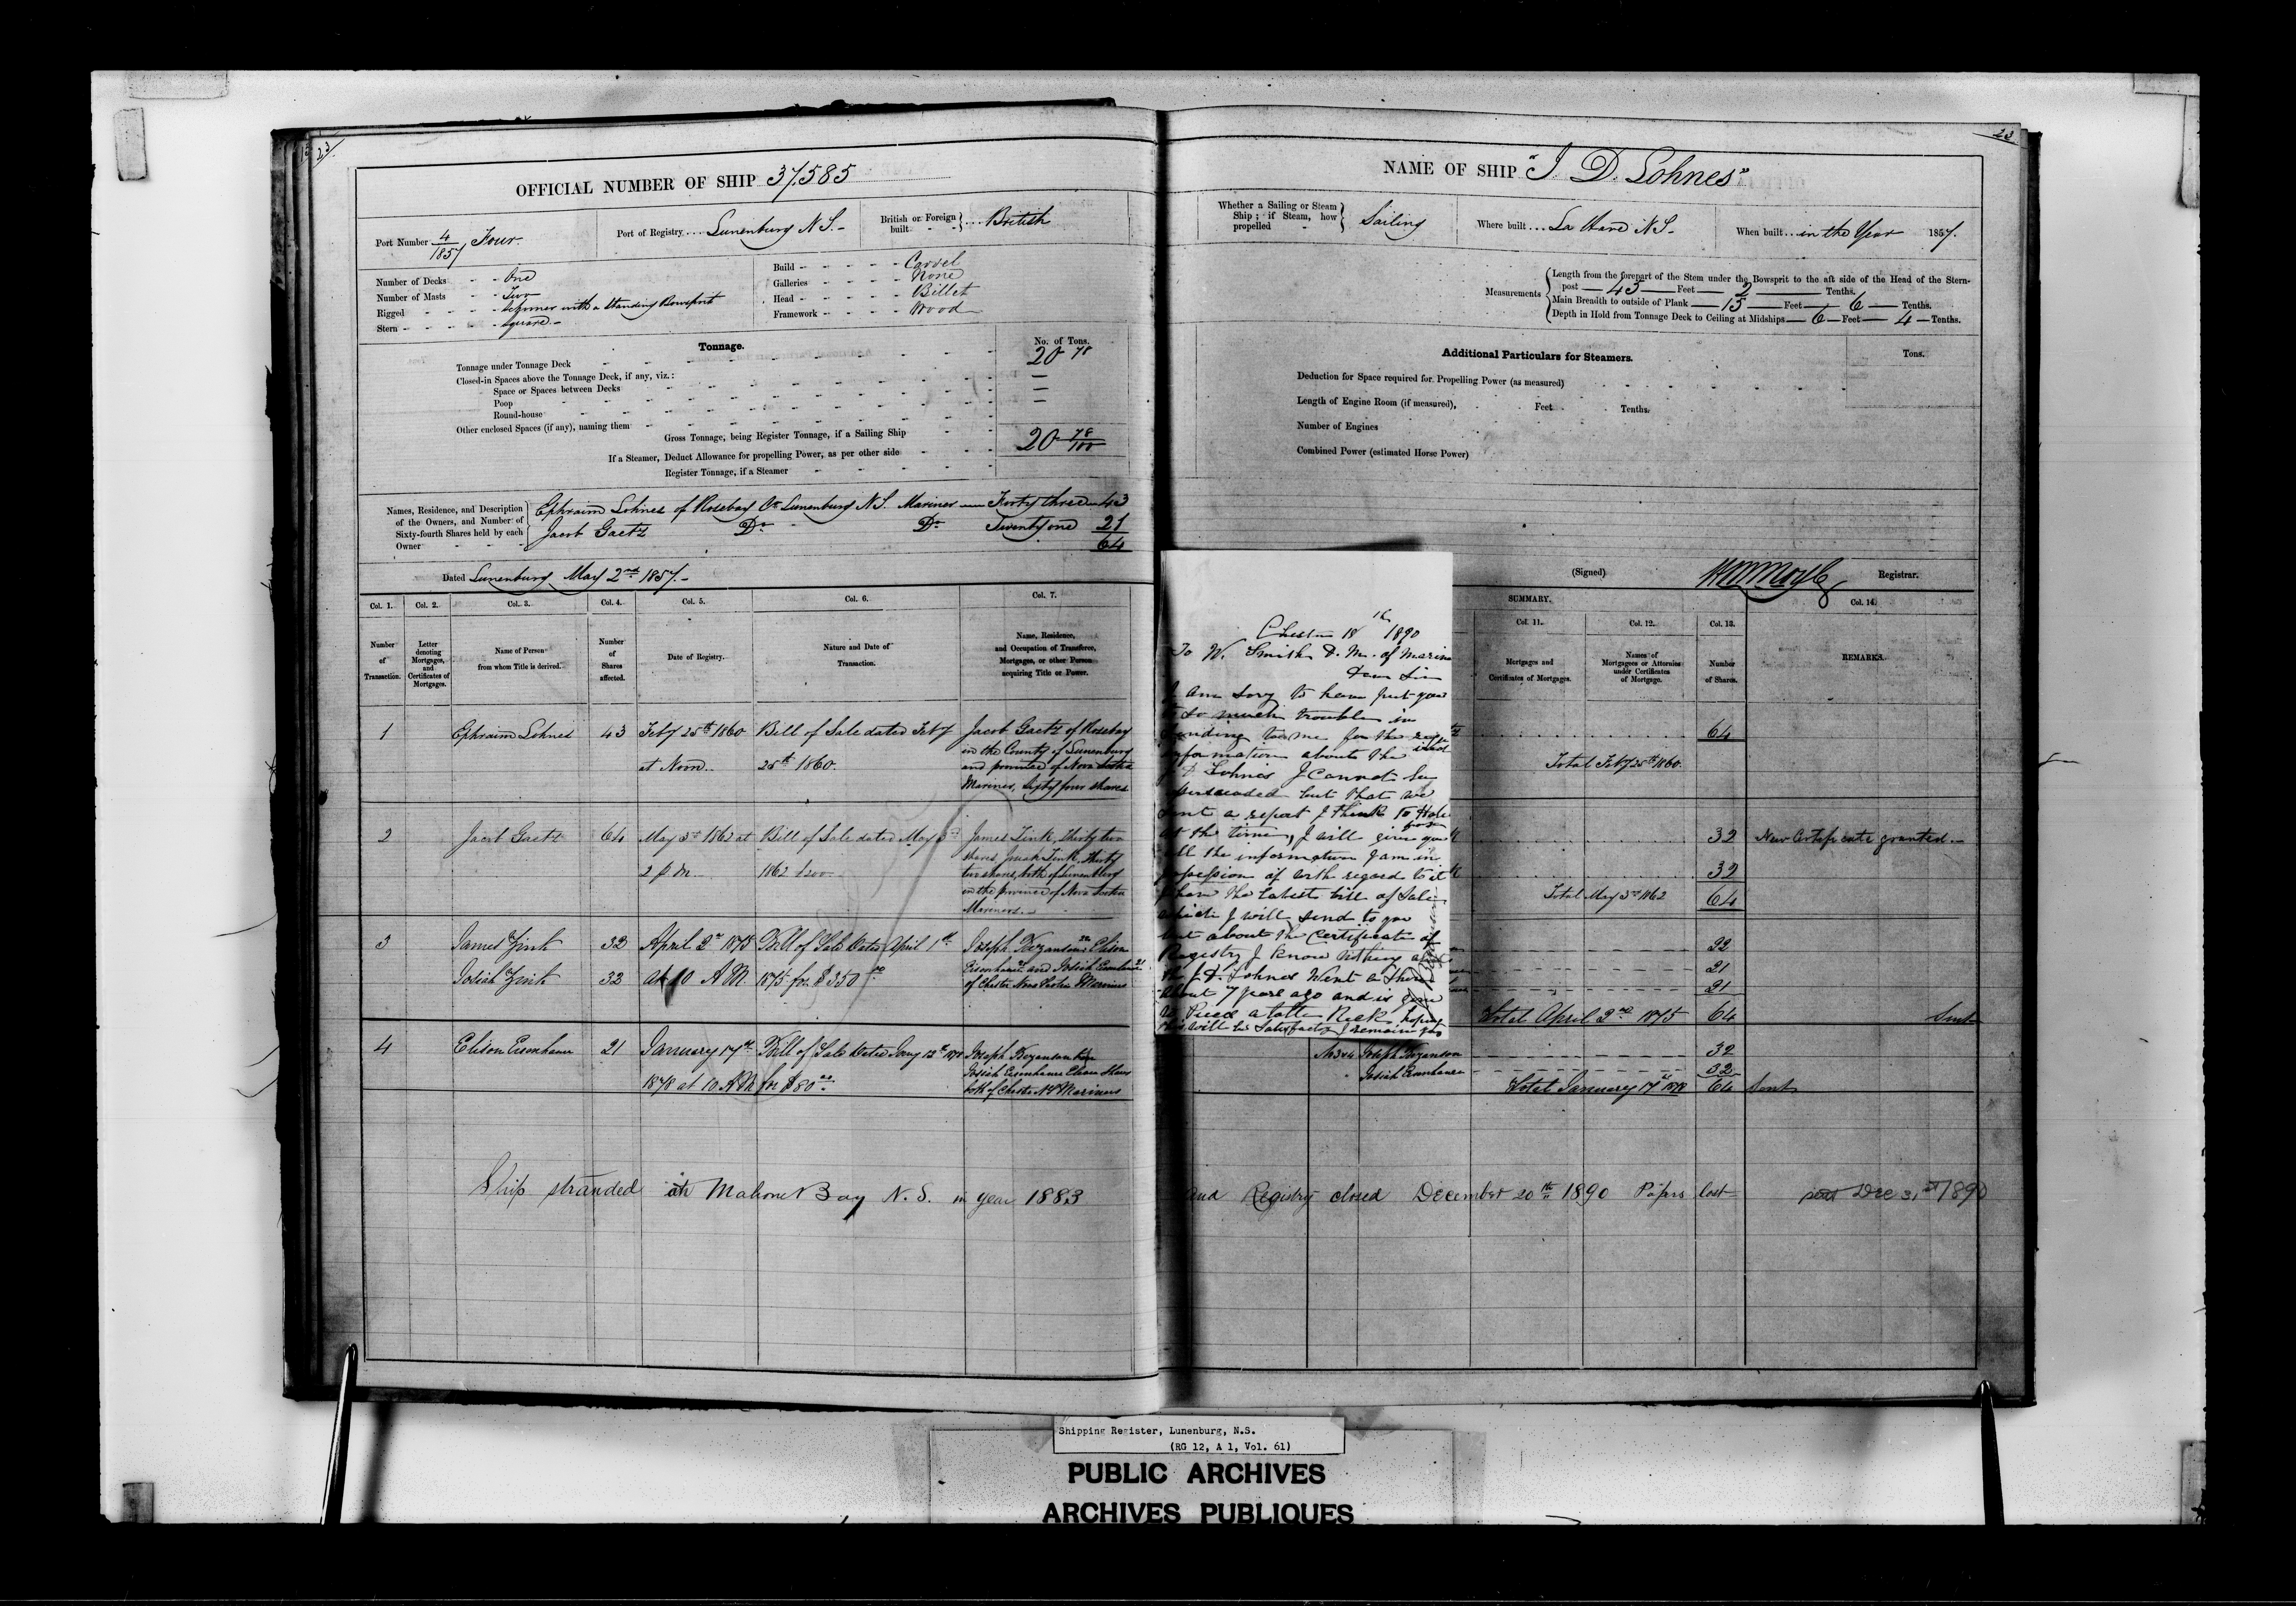 23
OFFICIAL NUMBER OF SHIP 37.585
Port Number 4/1857 Four.
Port of Registry Lunenburg N.S.
British or Foreign built British
Number of Decks One
Number of Masts Two
Rigged Schooner with a Standing Bowsprit
Stern Square
Build Carvel
Galleries None
Head Billet
Framework Wood
Tonnage.
No. of Tons.
Tonnage under Tonnage Deck 20 78
Closed-in Spaces above the Tonnage Deck, if any, viz.:
Space or Spaces between Decks —
Poop —
Round-house —
Other enclosed Spaces (if any), naming them
Gross Tonnage, being Register Tonnage, if a Sailing Ship 20 78/100
If a Steamer, Deduct Allowance for propelling Power, as per other side
Register Tonnage, if a Steamer
Names, Residence, and Description of the Owners, and Number of Sixty-fourth Shares held by each Owner
Ephraim Lohnes of Rosebay Co Lunenburg N.S. Mariner Forty three 43
Jacob Gaetz Do Do Twenty one 21
64
Dated Lunenburg May 2nd 1857.
Col. 1. Col. 2. Col. 3. Col. 4. Col. 5. Col. 6. Col. 7.
Number of Transaction.
Letter denoting Mortgages, and Certificates of Mortgages.
Name of Person from whom Title is derived.
Number of Shares affected.
Date of Registry.
Nature and Date of Transaction.
Name, Residence, and Occupation of Transferee, Mortgagee, or other Person acquiring Title or Power.
1 Ephraim Lohnes 43 Feby 25th 1860 Bill of Sale dated Feby Jacob Gaetz of Rosebay
in the County of Lunenburg
at Noon. 25th 1860. and province of Nova Scotia
Mariner, Sixty four shares
2 Jacob Gaetz 64 May 3rd 1862 at Bill of Sale dated May 3rd James Zink, Thirty two
shares, Josiah Zink, Thirty
2 p.m. 1862 two shares, both of Lunenburg
in the province of Nova Scotia
Mariners.
3 James Zink 32 April 2nd 1875 Bill of Sale dated April 1st Joseph Bezanson 22 Elison
Josiah Zink 32 at 10 A.M. 1875 for $350.00 Eisenhauer 21 and Josiah Eisenhauer 21
of Chester Nova Scotia Mariners
4 Elison Eisenhauer 21 January 17th Bill of Sale dated Jany 12th 1878 Joseph Bezanson
Josiah Eisenhauer
1878 at 10 A.M. for $80.00 both of Chester N.S. Mariners
Ship stranded at Mahone Bay N.S. in year 1883
23
NAME OF SHIP "J. D. Lohnes"
Whether a Sailing or Steam Ship; if Steam, how propelled Sailing
Where built La Have N.S.
When built in the Year 1857.
Measurements
Length from the forepart of the Stem under the Bowsprit to the aft side of the Head of the Stern-
post — 43 — Feet — 2 — Tenths.
Main Breadth to outside of Plank — 15 — Feet — 6 — Tenths.
Depth in Hold from Tonnage Deck to Ceiling at Midships — 6 — Feet — 4 — Tenths.
Additional Particulars for Steamers.
Tons.
Deduction for Space required for Propelling Power (as measured)
Length of Engine Room (if measured), Feet Tenths.
Number of Engines
Combined Power (estimated Horse Power)
(Signed) Registrar.
SUMMARY.
Col. 11. Col. 12. Col. 13. Col. 14.
Mortgages and Certificates of Mortgages.
Names of Mortgagees or Attornies under Certificates of Mortgage.
Number of Shares.
REMARKS.
64
Total Feby 25th 1860.
32 New Certificate granted.
32
Total May 3rd 1862 64
22
21
21
Total April 2nd 1875 64 Sent
Joseph Bezanson 32
Josiah Eisenhauer 32
Total January 17th 1878 64 Sent
and Registry closed December 20th 1890 Papers lost Dec 31st 1890
Chester 18th 1890
To W. Smith D. M. of Marine
Dear Sir
I am sory to have put you
to so much trouble in
sending to me for the
information about the
J. D. Lohnes I cannot be
persuaded but that we
sent a report I think to
at the time, I will give you
all the information I am in
possession of with regard to it
I have the latest bill of Sale
which I will send to you
but about the Certificate of
Registry I know nothing
the J.D. Lohnes went a shore
about 7 years ago and is gone
to Pieces a total Reck hoping
this will be Satisfactory I remain yours
Shipping Register, Lunenburg, N.S.
(RG 12, A 1, Vol. 61)
PUBLIC ARCHIVES
ARCHIVES PUBLIQUES